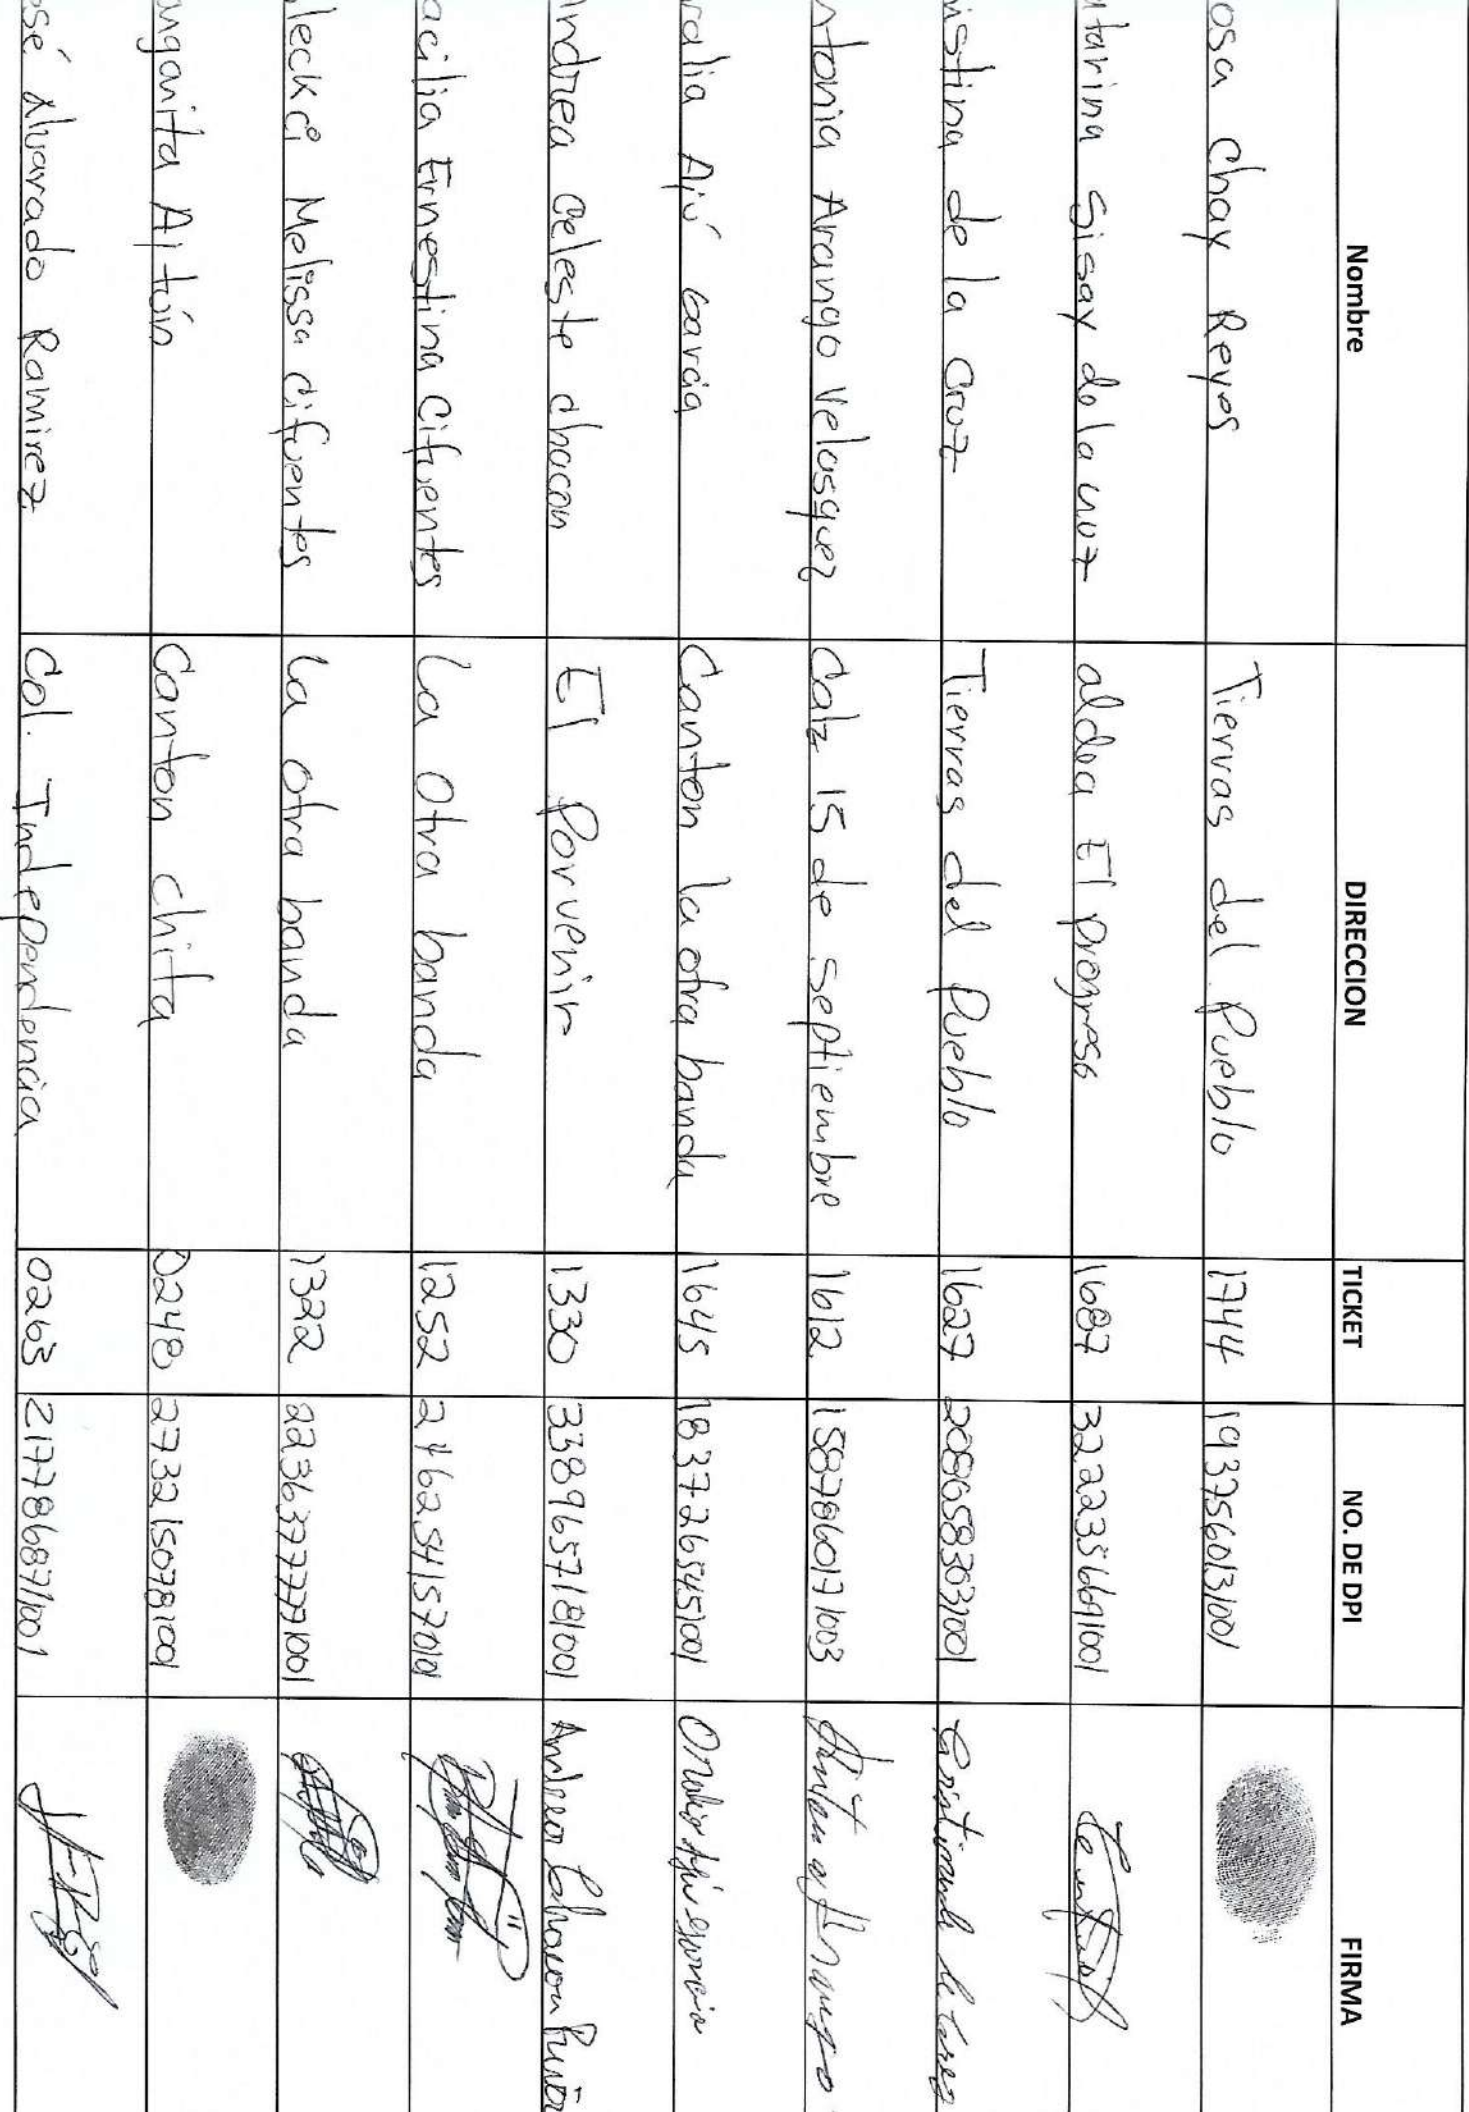 Nombre DIRECCION TICKET NO. DE DPI FIRMA
osa Chay Reyes Tierras del Pueblo 1744 1937560131001
atarina Sisay de la cruz aldea El progreso 1687 3222356691001
istina de la Cruz Tierras del Pueblo 1627 2086583031001
ntonia Arango Velasquez Calz 15 de septiembre 1612 1587860171003
ralia Ajú García Canton la otra banda 1645 1837265451001
Andrea Celeste chacon El Porvenir 1330 3389657181001 Andrea Chacon
acilia Ernestina Cifuentes La Otra banda 1252
lecka Melissa cifuentes La otra banda 1322 2236377771001
angarita Ajtún Canton chita 0248 2732150781001
osé Alvarado Ramirez Col. Independencia 0263 2177868711001